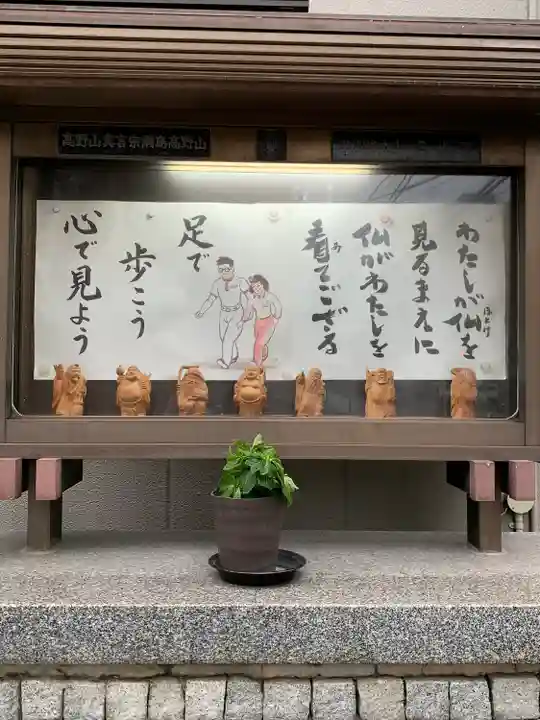 高野山真言宗高野山
わたしが仏を
ほとけ
見るまえに
仏がわたしを
看てござる
足で
歩こう
心で見よう